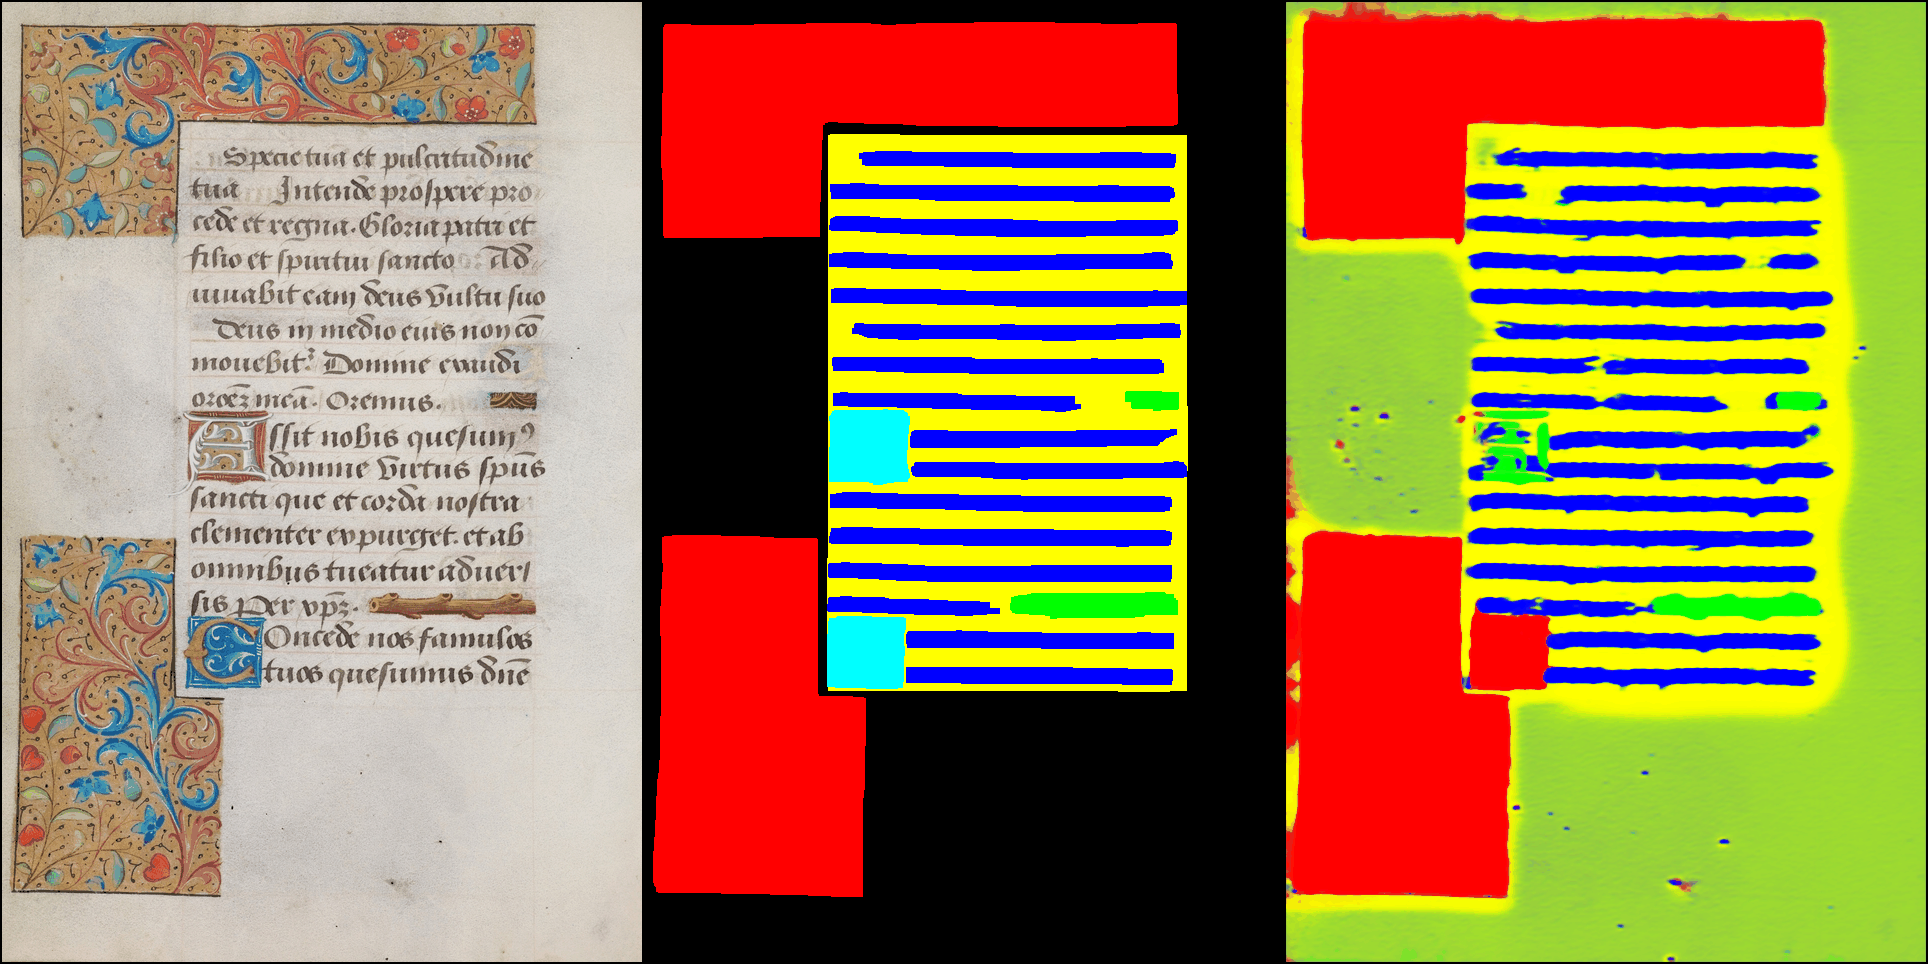 Specie tua et pulcritudine
tua Intende prospere pro
cede et regna. Gloria patri et
filio et spiritui sancto Ad
iuuabit eam deus vultu suo
Deus in medio eius non cō
mouebit᷑ Domine exaudi
orōeʒ meā. Oremus.
Assit nobis quesumꝰ
domine virtus spūs
sancti que et corda nostra
clementer expurget. et ab
omnibus tueatur aduer/
sis Per xp̄ʒ.
Concede nos famulos
tuos quesumus dn̄e